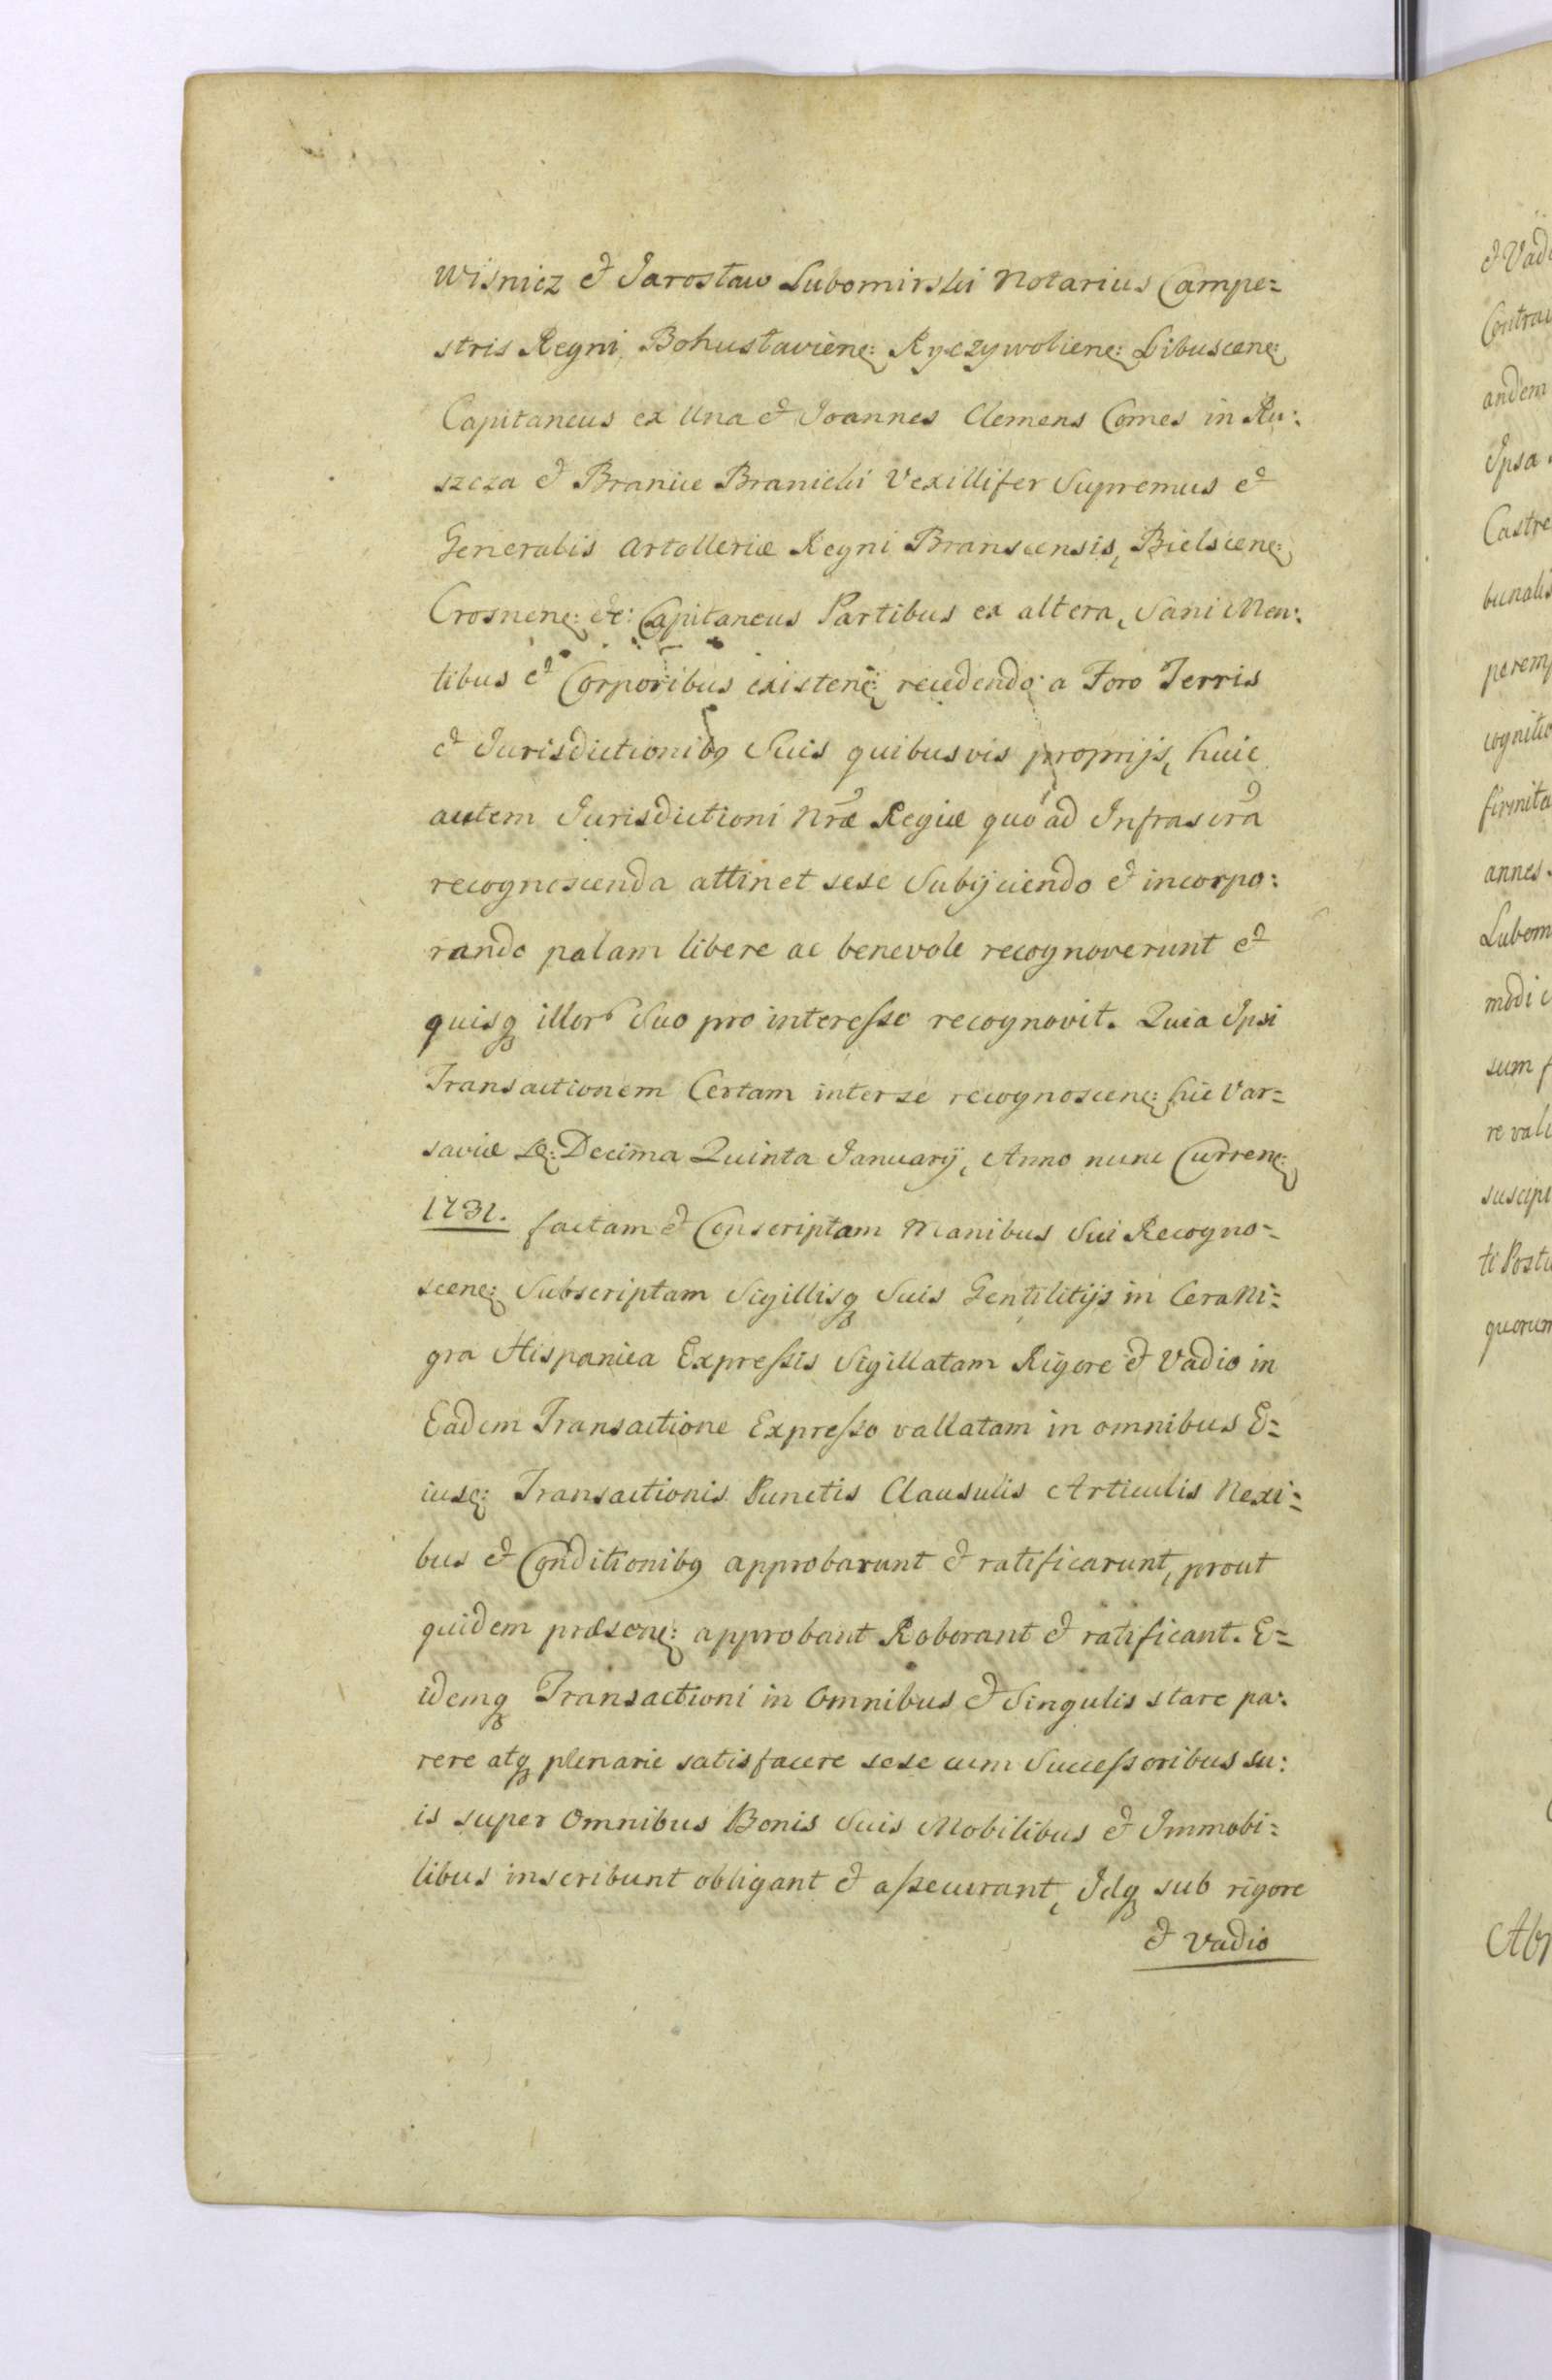 Wisnicz & Jarosław Lubomirski Notarius Campe=
stris Regni, Bohusłaviene: Ryczywoliene: Libuscene:
Capitaneus ex Una & Joannes Clemens Comes in Ru:
szcza & Branice Branicki Vexillifer Supremus &
Generalis Artolleriæ Regni Branscensis, Bielscene:
Crosnene: &c: Capitaneus Partibus ex altera, Sani Men:
tibus & Corporibus existenc: recedendo a Foro Terris
& Jurisdictionibg Suis quibusvis proprijs, huic
autem Jurisdictioni Nræ Regiæ quo ad Infrascra
recognoscenda attinet sese Subijciendo & incorpo:
rando palam libere ac benevole recognoverunt &
quisq illor Suo pro interesse recognovit. Quia Ipsi
Transactionem Certam inter se recognoscene: hic Var=
saviæ Decima Quinta January, Anno nunc Currene:
1731. factam & Conscriptam Manibus Sui Recogno=
scene: Subscriptam Sigillisq Suis Gentilitijs in Cera Ni=
gra Hispanica Expressis Sigillatam Rigore & Vadio in
Eadem Transactione Expresso vallatam in omnibus E=
iusq: Transactionis Punctis Clausulis Articulis Nexi=
bus & Conditionibg approbarunt & ratificarunt, prout
quidem præsene: approbant Roborant & ratificant. E=
idemq Transactioni in Omnibus & Singulis stare pa:
rere atq plenarie satisfacere sese cum Successoribus su:
is super Omnibus Bonis Suis Mobilibus & Immobi:
libus inscribunt obligant & assecurant, Idq sub rigore
& Vadio
& Vad
Contra
andem
Ipsa
Castre
bunalis
perem
cognitio
firmita
annes
Lubom
modi c
sum f
re vali
suscipi
ti Postu
quorum